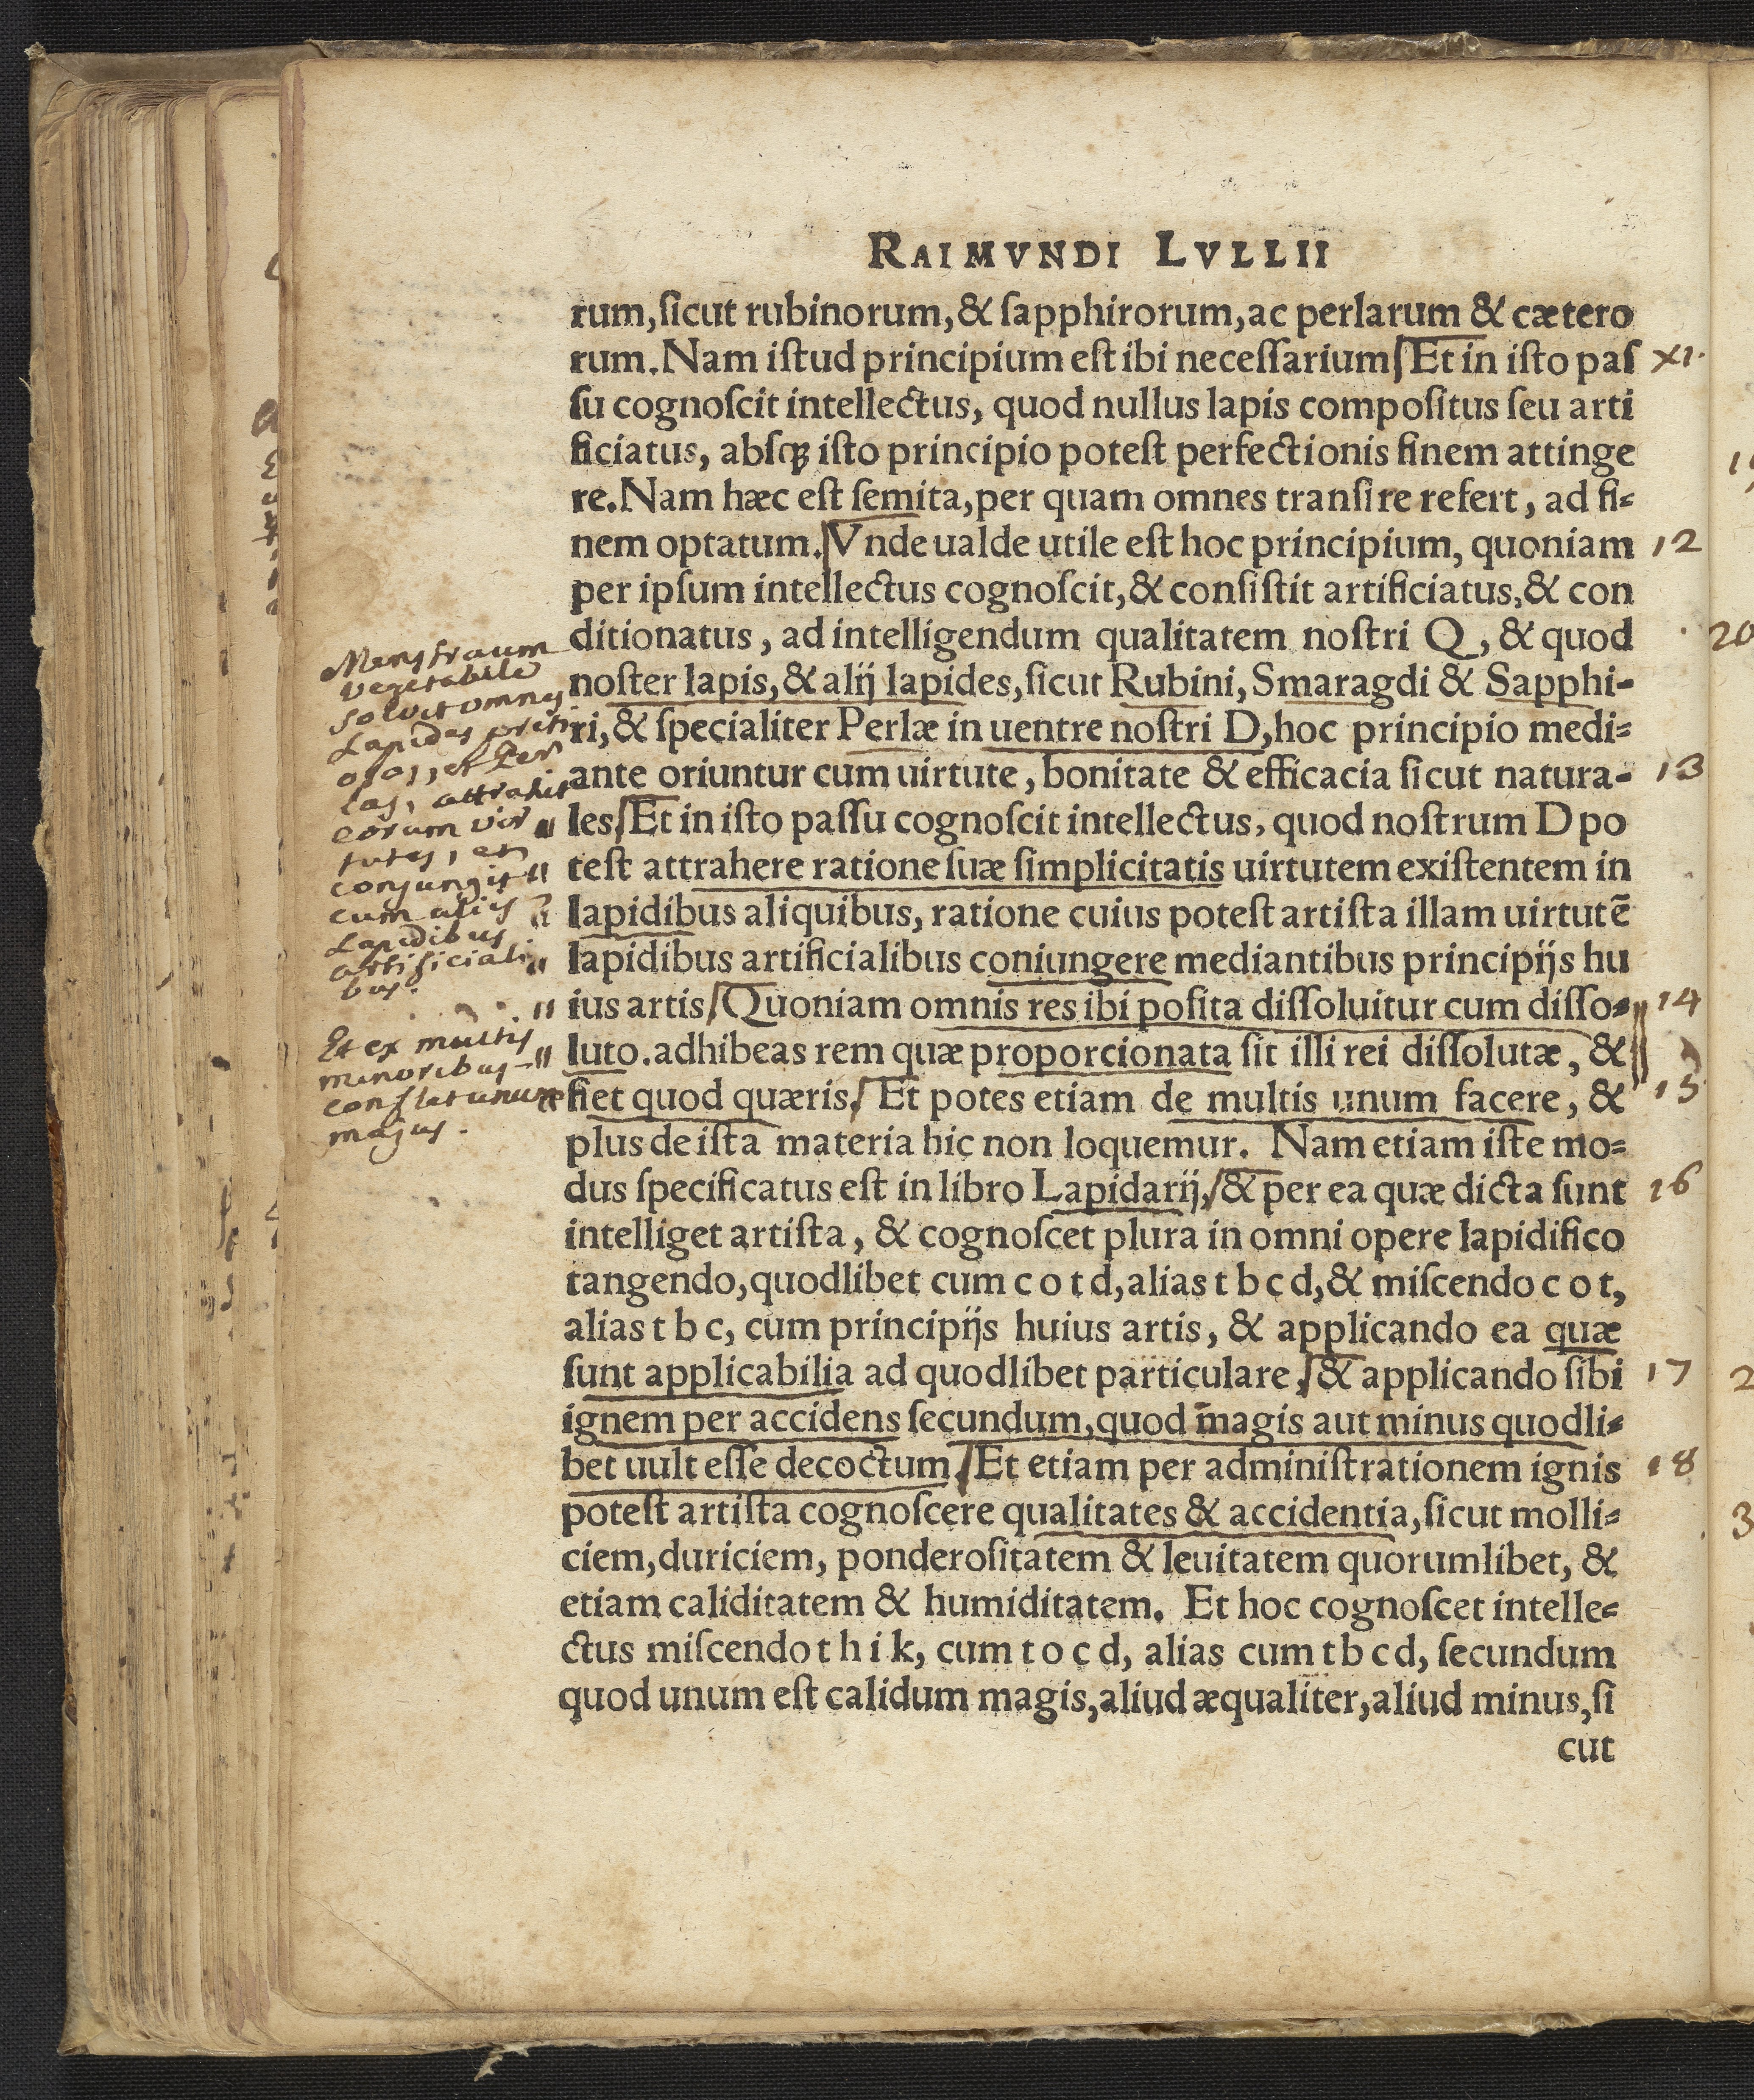 RAIMVNDI LVLLII
rum, ſicut rubinorum, & ſapphirorum, ac perlarum & cætero
rum. Nam iſtud principium eſt ibi neceſſarium/ Et in iſto paſ
xi.
ſu cognoſcit intellectus, quod nullus lapis compoſitus ſeu arti
ficiatus, abſqꝫ iſto principio poteſt perfectionis finem attinge
re. Nam hæc eſt ſemita, per quam omnes tranſire refert, ad fi-
nem optatum./ Vnde ualde utile eſt hoc principium, quoniam
12
per ipſum intellectus cognoſcit, & conſiſtit artificiatus, & con
ditionatus, ad intelligendum qualitatem noſtri Q, & quod
noſter lapis, & alij lapides, ſicut Rubini, Smaragdi & Sapphi-
ri, & ſpecialiter Perlæ in uentre noſtri D, hoc principio medi-
ante oriuntur cum uirtute, bonitate & efficacia ſicut natura-
13
les/ Et in iſto paſſu cognoſcit intellectus, quod noſtrum D po
teſt attrahere ratione ſuæ ſimplicitatis uirtutem exiſtentem in
lapidibus aliquibus, ratione cuius poteſt artiſta illam uirtutē
lapidibus artificialibus coniungere mediantibus principijs hu
ius artis/ Quoniam omnis res ibi poſita diſſoluitur cum diſſo-
14
luto. adhibeas rem quæ proporcionata ſit illi rei diſſolutæ, &
fiet quod quæris./ Et potes etiam de multis unum facere, &
15
plus de iſta materia hic non loquemur. Nam etiam iſte mo-
dus ſpecificatus eſt in libro Lapidarij,/ & per ea quæ dicta ſunt
16
intelliget artiſta, & cognoſcet plura in omni opere lapidifico
tangendo, quodlibet cum c o t d, alias t b c d, & miſcendo c o t,
alias t b c, cum principijs huius artis, & applicando ea quæ
ſunt applicabilia ad quodlibet particulare,/ & applicando ſibi
17
ignem per accidens ſecundum, quod magis aut minus quodli-
bet uult eſſe decoctum./ Et etiam per adminiſtrationem ignis
18
poteſt artiſta cognoſcere qualitates & accidentia, ſicut molli-
ciem, duriciem, ponderoſitatem & leuitatem quorumlibet, &
etiam caliditatem & humiditatem. Et hoc cognoſcet intelle-
ctus miſcendo t h i k, cum t o c d, alias cum t b c d, ſecundum
quod unum eſt calidum magis, aliud æqualiter, aliud minus, ſi
cut
Menstruum
vegetabile
solvit omnes
Lapides preti
osos, et Per
las, attrahit
eorum vir
tutes, et
conjungit
cum aliis
Lapidibus
artificiali
bus.
Et ex multis
minoribus
conflat unum
majus.
20